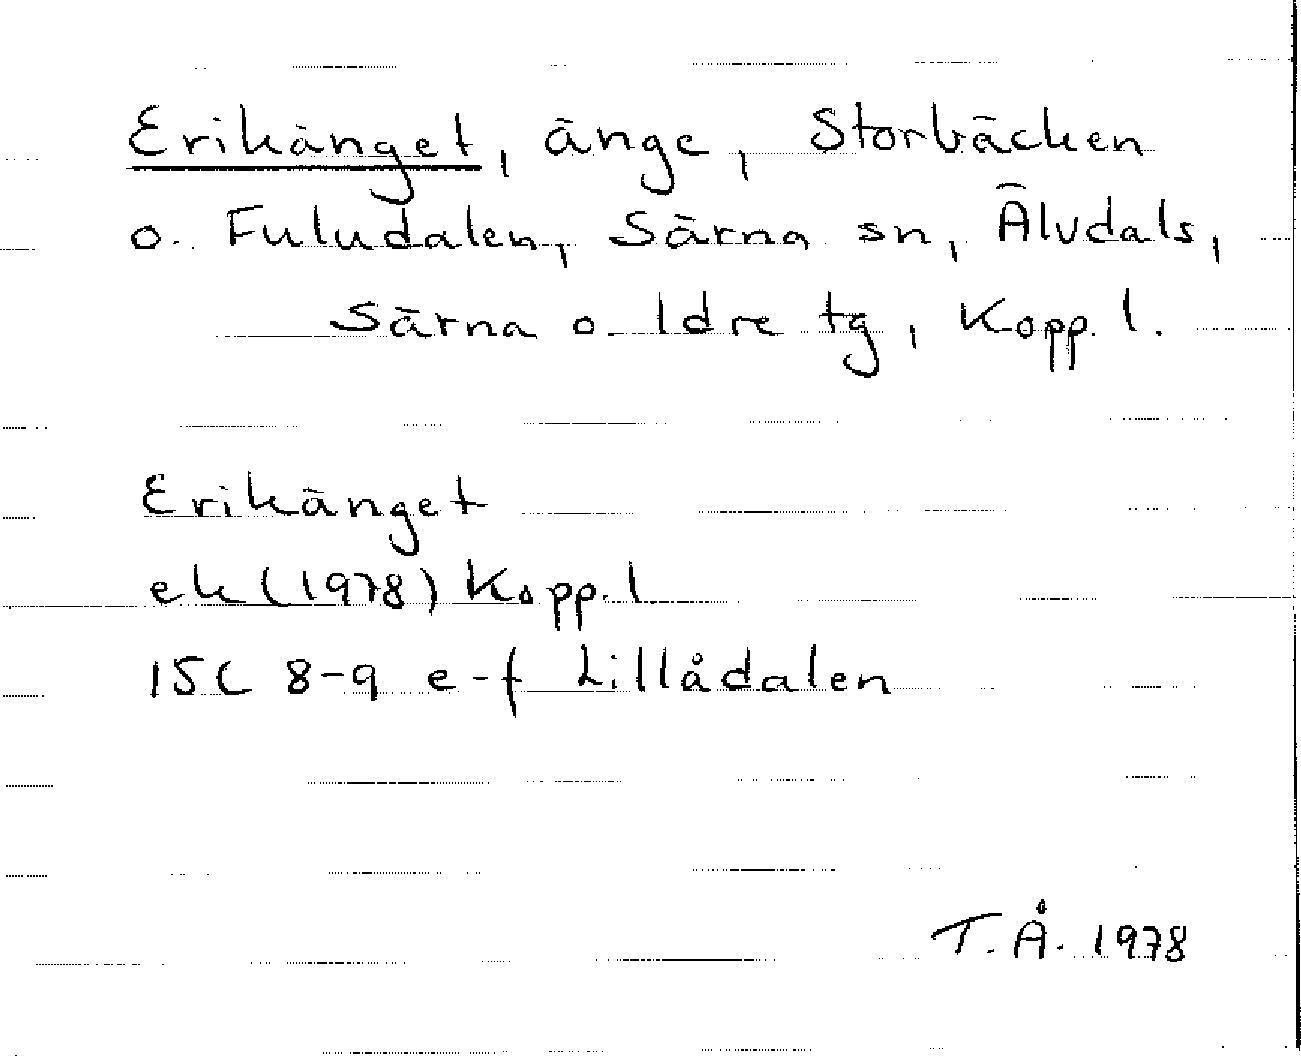 Erikänget, änge, Storbäcken
o. Fuludalen, Särna sn, Älvdals,
Särna o. Idre tg, Kopp. l.
Erikänget
ek (1978) Kopp. l
15C 8-9 e-f Lillådalen
T. Å. 1978